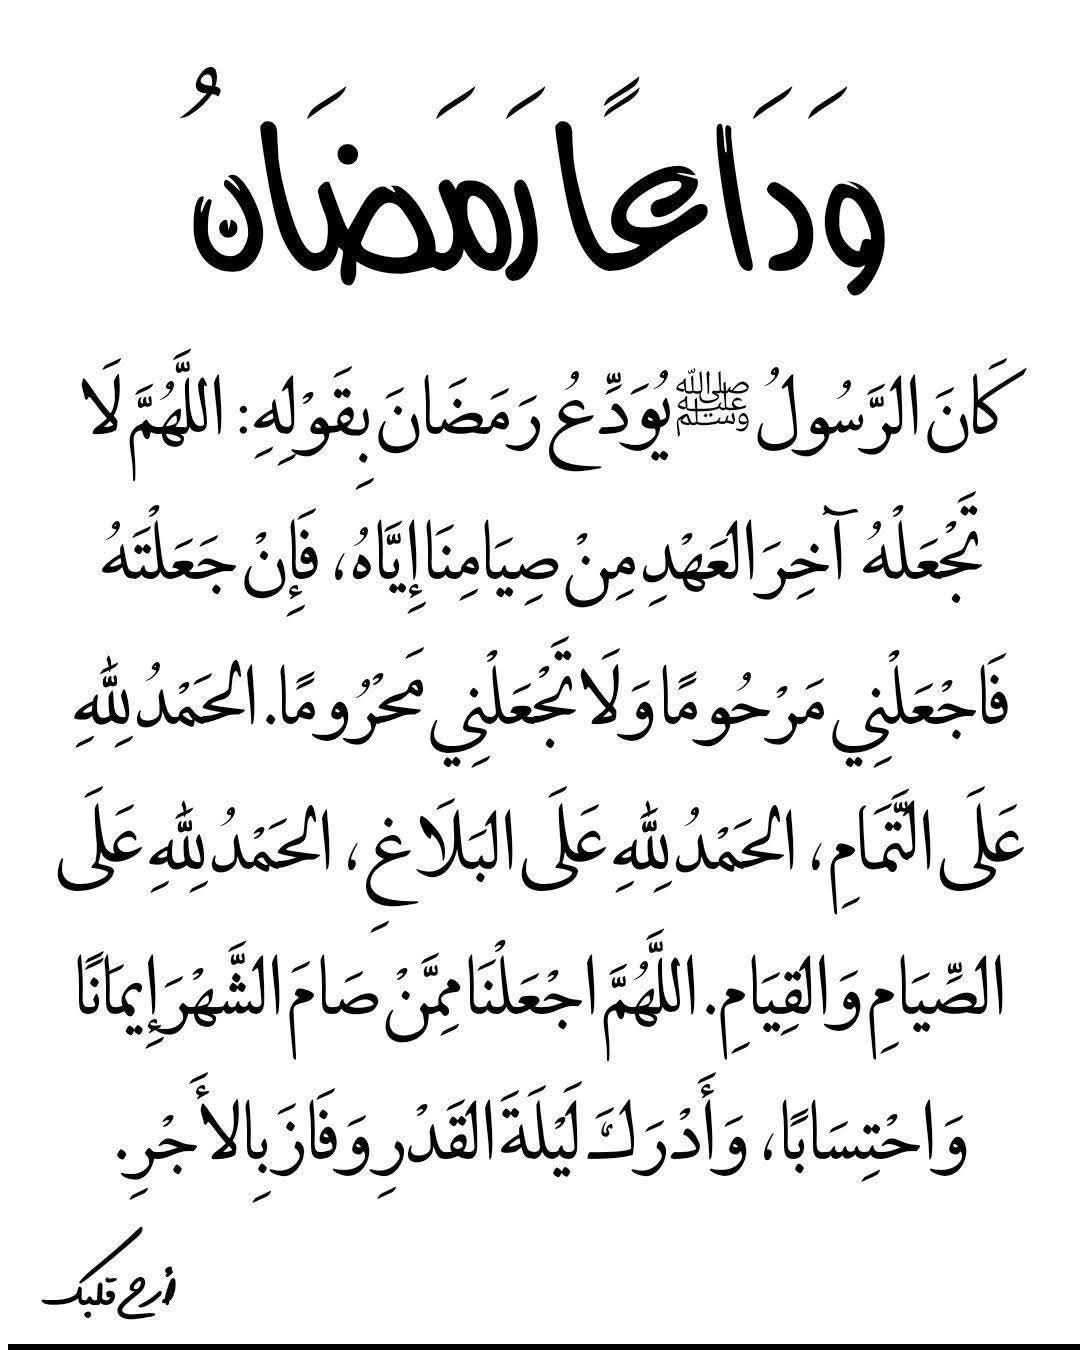 وَدَاعًا رَمَضَانُ
كَانَ الرَّسُولُ ﷺ يُوَدِّعُ رَمَضَانَ بِقَوْلِهِ: اللَّهُمَّ لَا
تَجْعَلْهُ آخِرَ العَهْدِ مِنْ صِيَامِنَا إِيَّاهُ، فَإِنْ جَعَلْتَهُ
فَاجْعَلْنِي مَرْحُومًا وَلَا تَجْعَلْنِي مَحْرُومًا. الحَمْدُ لِلّهِ
عَلَى التَّمَامِ، الحَمْدُ لِلّهِ عَلَى البَلَاغِ، الحَمْدُ لِلّهِ عَلَى
الصِّيَامِ وَالقِيَامِ. اللَّهُمَّ اجْعَلْنَا مِمَّنْ صَامَ الشَّهْرَ إِيمَانًا
وَاحْتِسَابًا، وَأَدْرَكَ لَيْلَةَ القَدْرِ وَفَازَ بِالأَجْرِ.
أرح قلبك